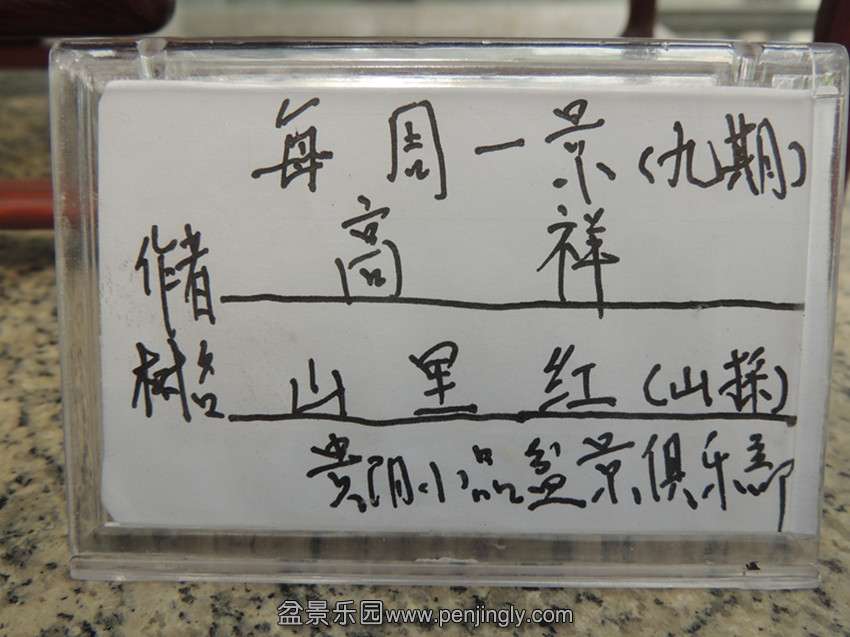 每周一景(九期)
作者 高祥
树名 山里红(山採)
贵阴小品盆景俱乐部
盆景乐园www.penjingly.com